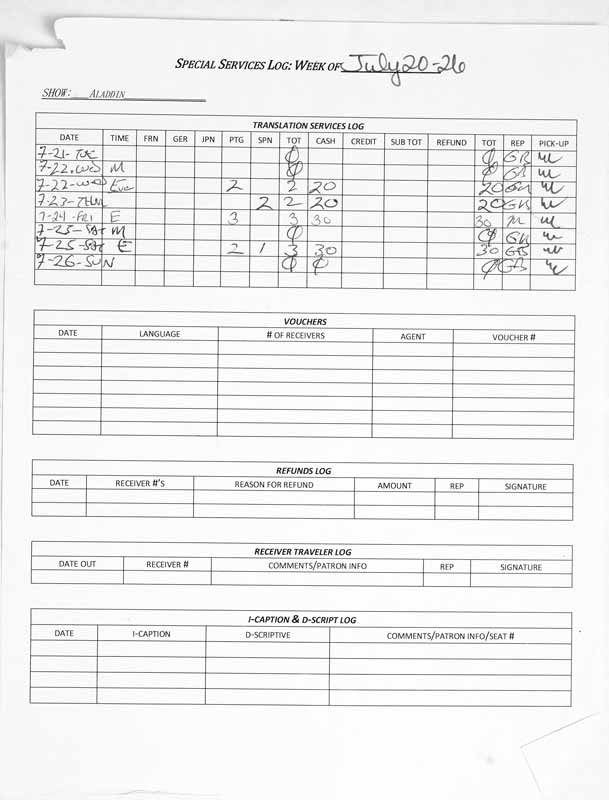 SPECIAL SERVICES LOG: WEEK OF: July 20-26
SHOW: ALADDIN
TRANSLATION SERVICES LOG
DATE TIME FRN GER JPN PTG SPN TOT CASH CREDIT SUB TOT REFUND TOT REP PICK-UP
7-21-TUE Ø Ø GR
7-22-WED M Ø Ø GR
7-22-WED Eve 2 2 20 20
7-23-THU 2 2 20 20
7-24-FRI E 3 3 30 30
7-25-SAT M Ø Ø
7-25-SAT E 2 1 3 30 30
7-26-SUN Ø Ø Ø
VOUCHERS
DATE LANGUAGE # OF RECEIVERS AGENT VOUCHER #
REFUNDS LOG
DATE RECEIVER #'S REASON FOR REFUND AMOUNT REP SIGNATURE
RECEIVER TRAVELER LOG
DATE OUT RECEIVER # COMMENTS/PATRON INFO REP SIGNATURE
I-CAPTION & D-SCRIPT LOG
DATE I-CAPTION D-SCRIPTIVE COMMENTS/PATRON INFO/SEAT #